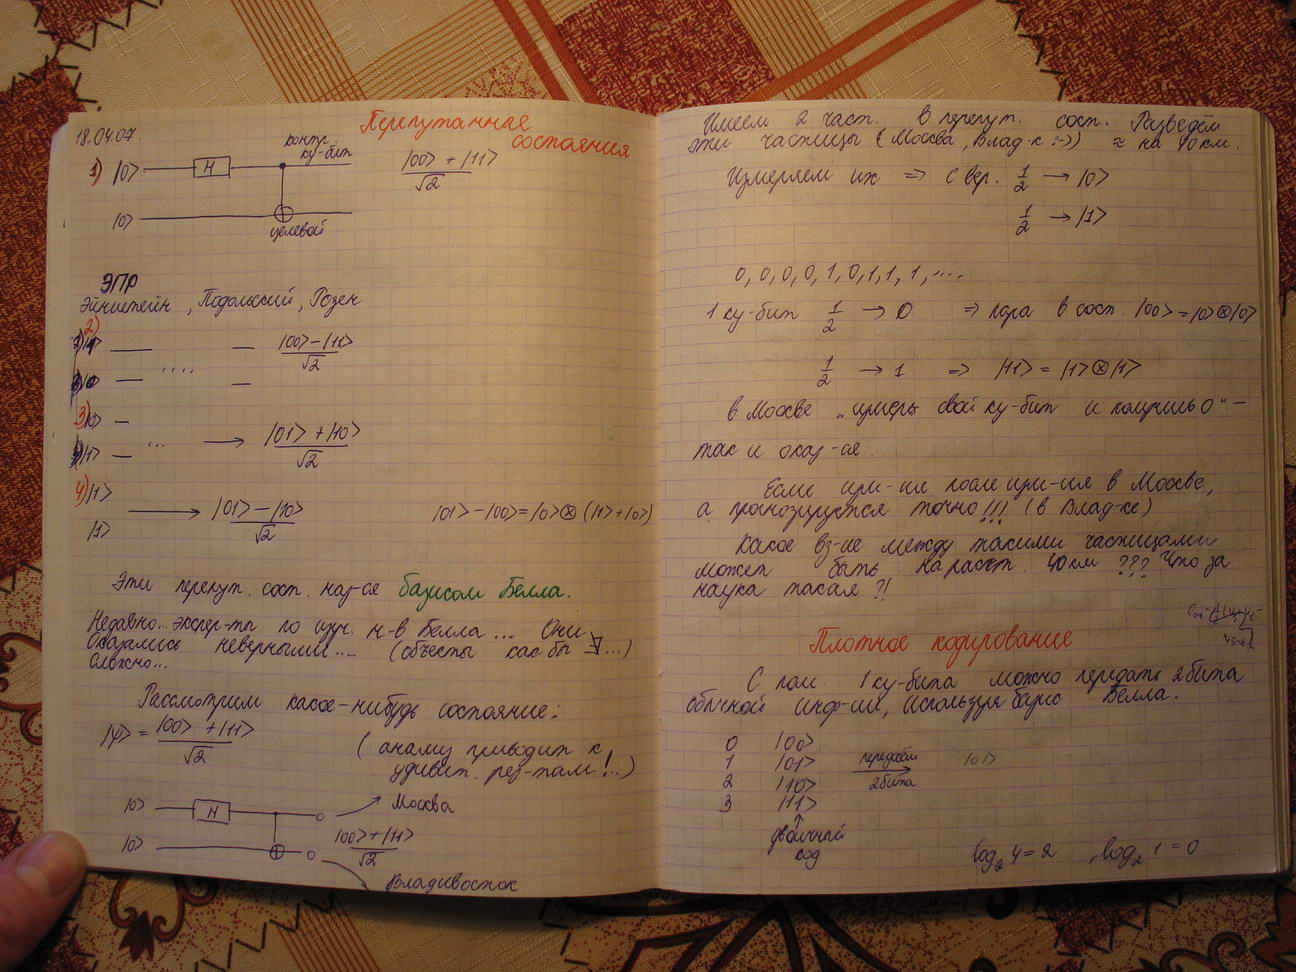 18.04.07.
Перепутанные
состояния
1) |0> H контр. ку-бит
(|00> + |11>)/√2
|0> целевой
ЭПР
Эйнштейн, Подольский, Розен
2)
— .... — (|00> - |11>)/√2
— —
3)
|0> —
... → (|01> + |10>)/√2
|1> —
4) |1>
→ (|01> - |10>)/√2 |01> - |00> = |0> ⊗ (|1> + |0>)
|1>
Эти перепут. сост. наз-ся базисом Белла.
Недавно... экспер-ты по изуч. н-в Белла... Они
оказались неверными.... (объекты как бы ∃...)
сложно...
Рассмотрим какое-нибудь состояние:
|ψ> = (|00> + |11>)/√2
(анализ приводит к
удивит. рез-там!..)
|0> H → Москва
|0> (|00> + |11>)/√2
→ Владивосток
Имеем 2 част. в перепут. сост. Разведём
эти частицы (Москва, Влад-к :-)) ≈ на 40 км.
Измеряем их ⇒ с вер. 1/2 → |0>
1/2 → |1>
0, 0, 0, 0, 1, 0, 1, 1, 1, ....
1 ку-бит 1/2 → 0 ⇒ пара в сост. |00> = |0>⊗|0>
1/2 → 1 ⇒ |11> = |1>⊗|1>
в Москве „измерь свой ку-бит и получишь 0" —
так и оказ-ся.
Если изм-ия после изм-ия в Москве,
а прогнозируется точно!!! (в Влад-ке)
Какое вз-ие между такими частицами
может быть на расст. 40 км ??? Что за
наука такая ?!
Плотное кодирование
С пом. 1 ку-бита можно передать 2 бита
обычной инф-ии, используя базис Белла.
0 |00>
1 |01> передаём |01>
2 |10> 2 бита
3 |11>
двоичный
код
log₂ 4 = 2 , log₂ 1 = 0